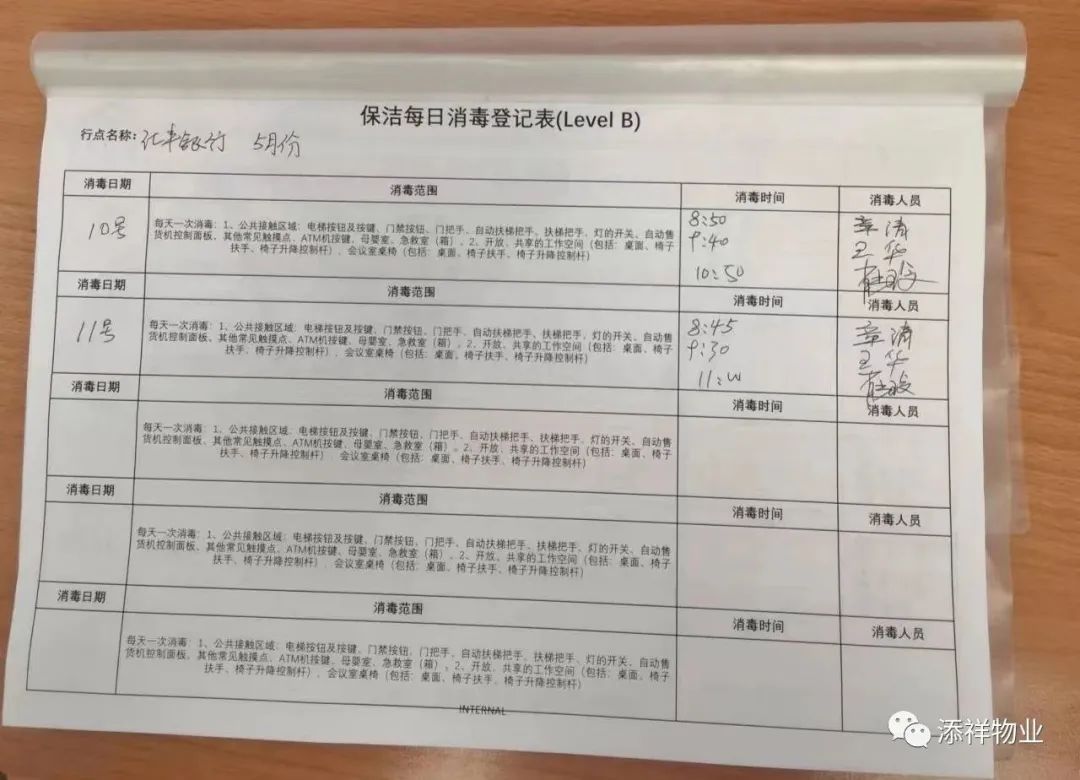 保洁每日消毒登记表(Level B)
行点名称：汇丰银行 5月份
消毒日期 消毒范围 消毒时间 消毒人员
10号
每天一次消毒：1、公共接触区域：电梯按钮及按键、门禁按钮、门把手、自动扶梯把手、扶梯把手、灯的开关、自动售
货机控制面板、其他常见触摸点、ATM机按键、母婴室、急救室（箱）。2、开放、共享的工作空间（包括：桌面、椅子
扶手、椅子升降控制杆）、会议室桌椅（包括：桌面、椅子扶手、椅子升降控制杆）
8:50 章清
9:40 王华
10:50
消毒日期 消毒范围 消毒时间 消毒人员
11号
每天一次消毒：1、公共接触区域：电梯按钮及按键、门禁按钮、门把手、自动扶梯把手、扶梯把手、灯的开关、自动售
货机控制面板、其他常见触摸点、ATM机按键、母婴室、急救室（箱）。2、开放、共享的工作空间（包括：桌面、椅子
扶手、椅子升降控制杆）、会议室桌椅（包括：桌面、椅子扶手、椅子升降控制杆）
8:45 章清
9:30 王华
11:00
消毒日期 消毒范围 消毒时间 消毒人员
每天一次消毒：1、公共接触区域：电梯按钮及按键、门禁按钮、门把手、自动扶梯把手、扶梯把手、灯的开关、自动售
货机控制面板、其他常见触摸点、ATM机按键、母婴室、急救室（箱）。2、开放、共享的工作空间（包括：桌面、椅子
扶手、椅子升降控制杆）、会议室桌椅（包括：桌面、椅子扶手、椅子升降控制杆）
消毒日期 消毒范围 消毒时间 消毒人员
每天一次消毒：1、公共接触区域：电梯按钮及按键、门禁按钮、门把手、自动扶梯把手、扶梯把手、灯的开关、自动售
货机控制面板、其他常见触摸点、ATM机按键、母婴室、急救室（箱）。2、开放、共享的工作空间（包括：桌面、椅子
扶手、椅子升降控制杆）、会议室桌椅（包括：桌面、椅子扶手、椅子升降控制杆）
消毒日期 消毒范围 消毒时间 消毒人员
每天一次消毒：1、公共接触区域：电梯按钮及按键、门禁按钮、门把手、自动扶梯把手、扶梯把手、灯的开关、自动售
货机控制面板、其他常见触摸点、ATM机按键、母婴室、急救室（箱）。2、开放、共享的工作空间（包括：桌面、椅子
扶手、椅子升降控制杆）、会议室桌椅（包括：桌面、椅子扶手、椅子升降控制杆）
INTERNAL
添祥物业